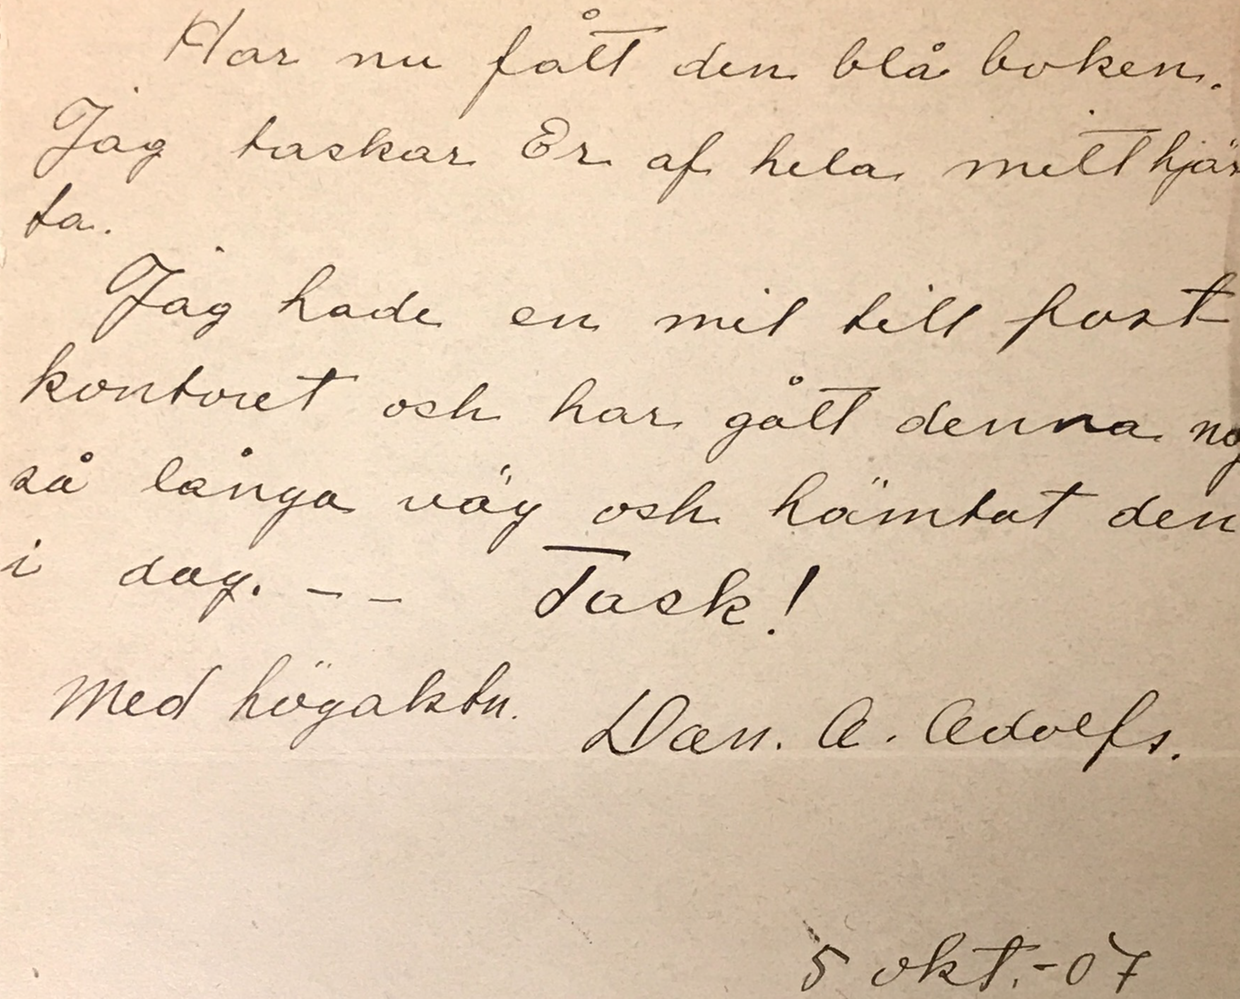 Har nu fått den blå boken.
Jag taskar Er af hela mitt hjär
ta.
Jag hade en mil till post
kontoret osh har gått denna ng
så långa väg osh hämtat den
i dag. – – Task!
Med högaktn. Dan. A. Adolfs.
5 okt.-07